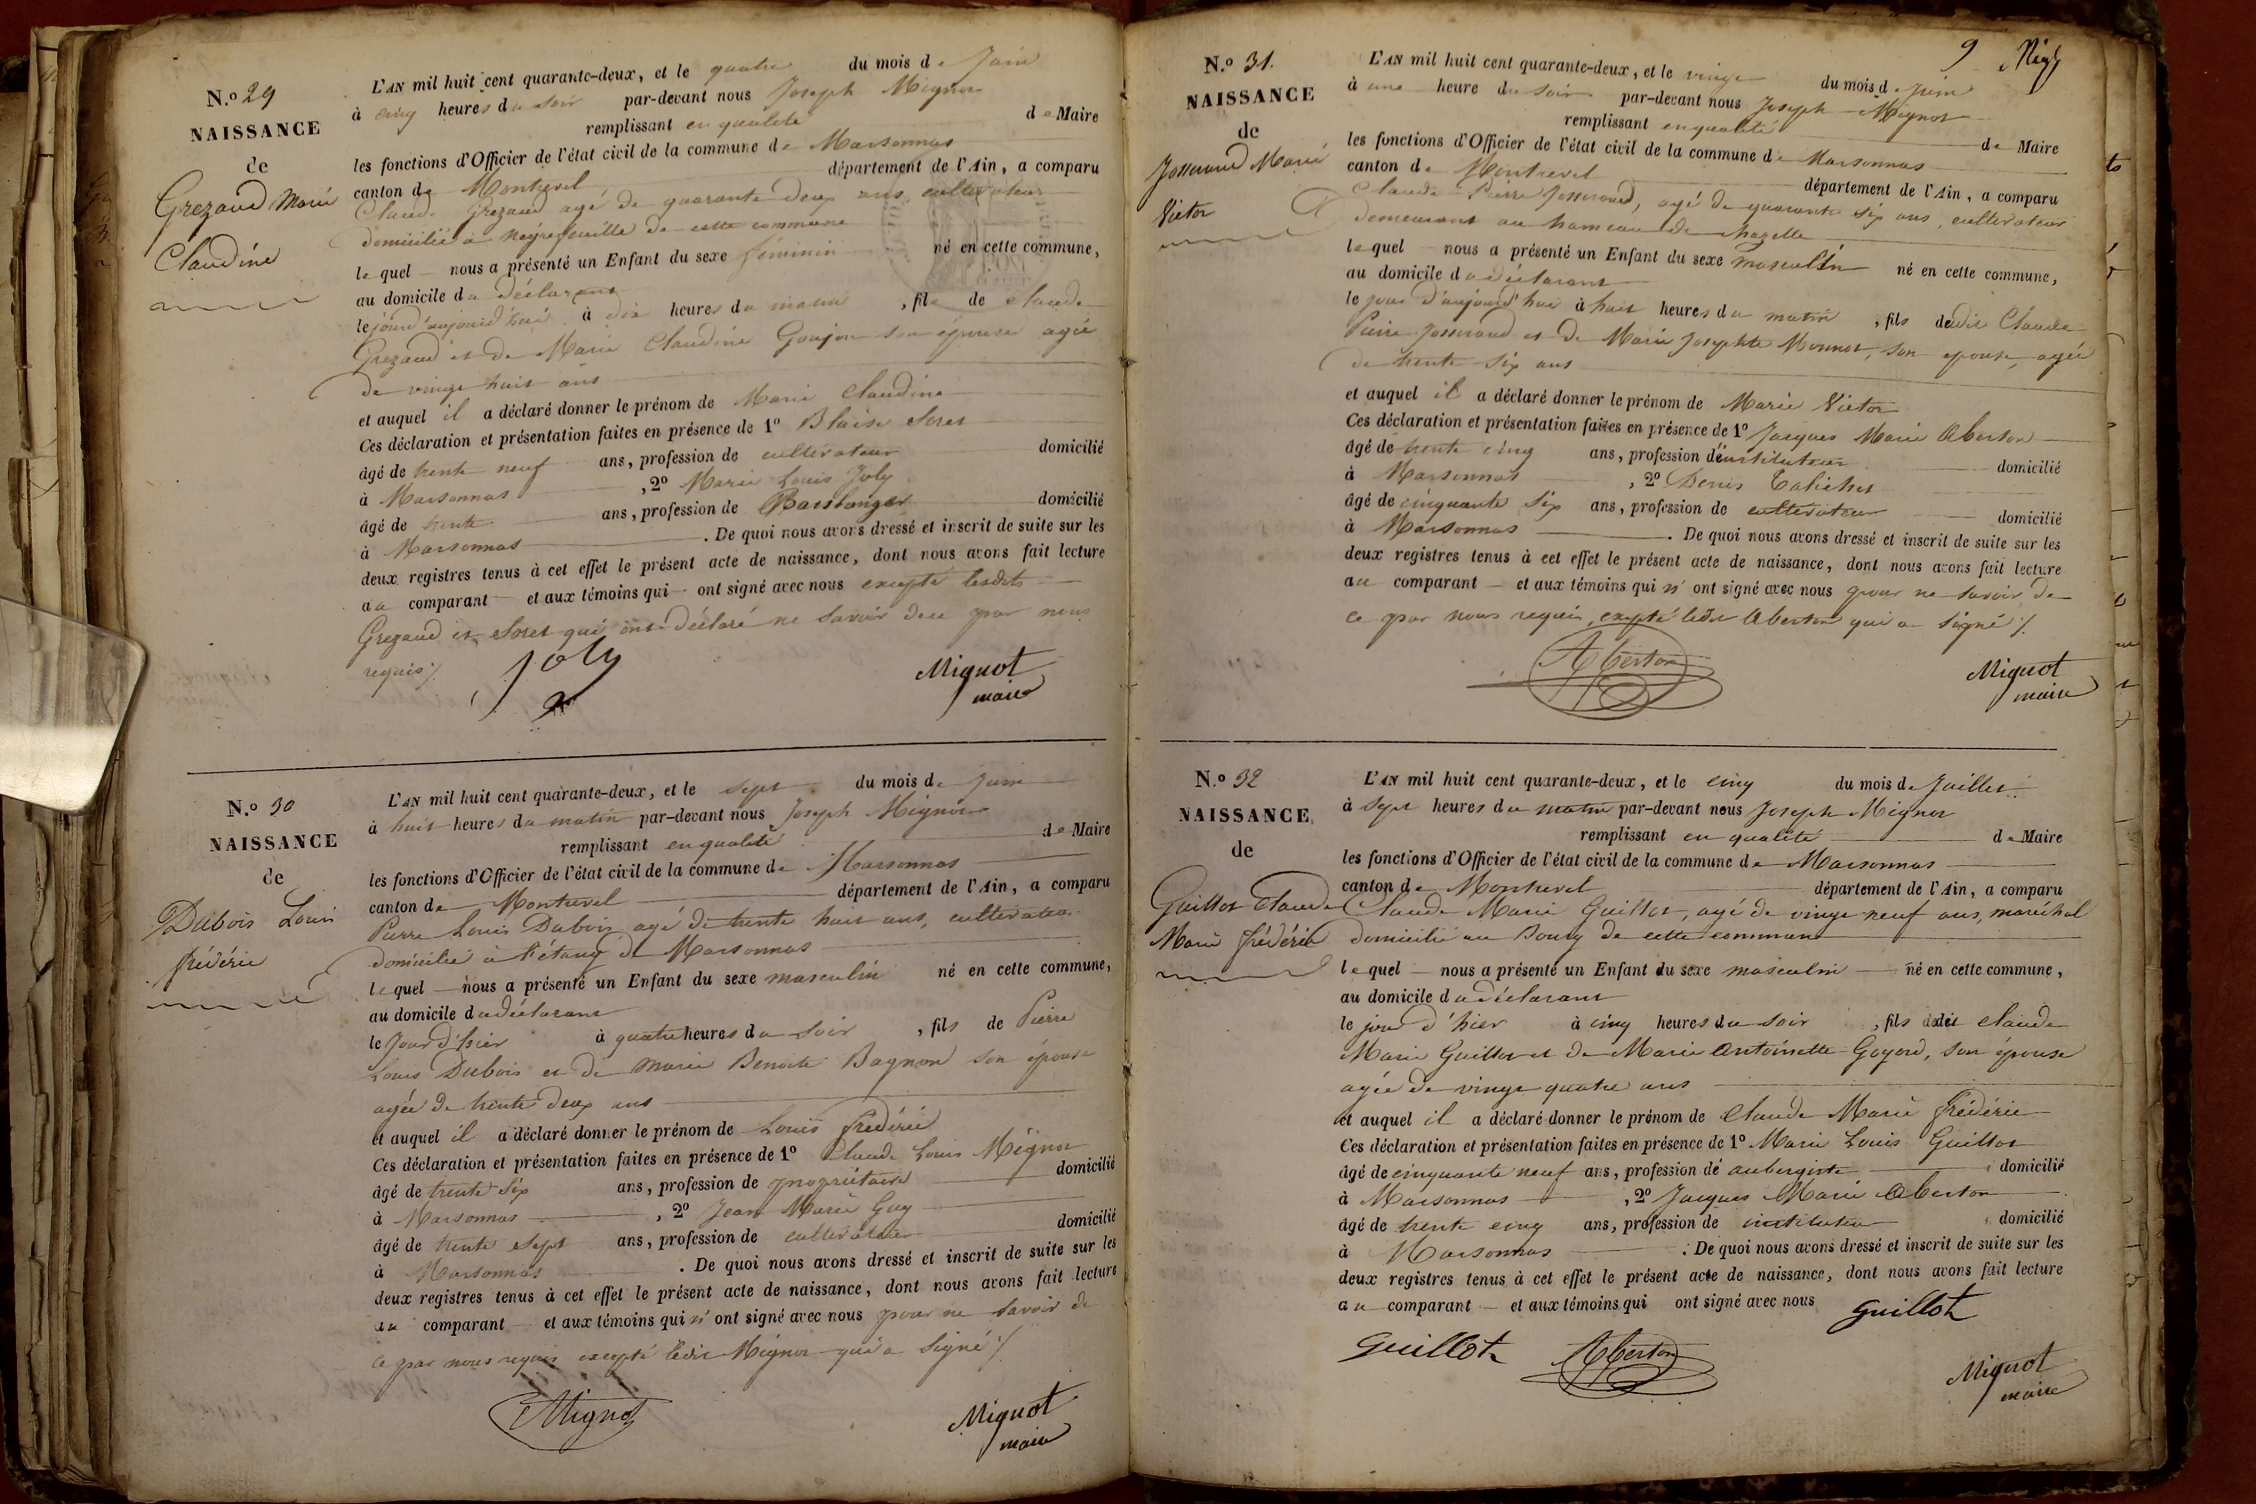 N.º 29
NAISSANCE
de
Grezaud Marie
Claudine
L'AN mil huit cent quarante-deux, et le quatre du mois de Juin
à cinq heures du soir par-devant nous Joseph Mignot
remplissant en qualité de Maire
les fonctions d'Officier de l'état civil de la commune de Marsonnas
canton de Montrevel département de l'Ain, a comparu
Claude Grezaud agé de quarante deux ans, cultivateur
domicilié à de cette commune
lequel nous a présenté un Enfant du sexe féminin né en cette commune,
au domicile du déclarant
le jour d'aujourd'hui à dix heures du matin, fils de Claude
Grezaud et de Marie Claudine Goujon son épouse agée
de vingt huit ans
et auquel il a déclaré donner le prénom de Marie Claudine
Ces déclaration et présentation faites en présence de 1º Blaise Soret
âgé de trente neuf ans, profession de cultivateur domicilié
à Marsonnas, 2º Marie Louis Joly
âgé de trente ans, profession de Boulanger domicilié
à Marsonnas. De quoi nous avons dressé et inscrit de suite sur les
deux registres tenus à cet effet le présent acte de naissance, dont nous avons fait lecture
au comparant et aux témoins qui ont signé avec nous excepté lesdits
Grezaud et Soret qui ont déclaré ne savoir de ce par nous
requis ./.
Joly
Mignot
maire
N.º 30
NAISSANCE
de
Dubois Louis
frédéric
L'AN mil huit cent quarante-deux, et le sept du mois de Juin
à huit heures du matin par-devant nous Joseph Mignot
remplissant en qualité de Maire
les fonctions d'Officier de l'état civil de la commune de Marsonnas
canton de Montrevel département de l'Ain, a comparu
Pierre Louis Dubois agé de trente huit ans, cultivateur
domicilié à l'étang de Marsonnas
lequel nous a présenté un Enfant du sexe masculin né en cette commune,
au domicile du déclarant
le Jour d'hier à quatre heures du soir, fils de Pierre
Louis Dubois et de Marie Benoite Bagnon son épouse
agée de trente deux ans
et auquel il a déclaré donner le prénom de Louis frédéric
Ces déclaration et présentation faites en présence de 1º Claude Louis Mignot
âgé de trente six ans, profession de propriétaire domicilié
à Marsonnas, 2º Jean Marie Guy
âgé de trente sept ans, profession de cultivateur domicilié
à Marsonnas. De quoi nous avons dressé et inscrit de suite sur les
deux registres tenus à cet effet le présent acte de naissance, dont nous avons fait lecture
au comparant et aux témoins qui n'ont signé avec nous pour ne savoir de
ce par nous requis excepté ledit Mignot qui a signé ./.
Mignot
Mignot
maire
9
N.º 31.
NAISSANCE
de
Josserand Marie
Victor
L'AN mil huit cent quarante-deux, et le vingt du mois de Juin
à une heure du soir par-devant nous Joseph Mignot
remplissant en qualité de Maire
les fonctions d'Officier de l'état civil de la commune de Marsonnas
canton de Montrevel département de l'Ain, a comparu
Claude Pierre Josserand, agé de quarante six ans, cultivateur
demeurant au hameau de chazelle
lequel nous a présenté un Enfant du sexe masculin né en cette commune,
au domicile du déclarant
le jour d'aujourd'hui à huit heures du matin, fils dudit Claude
Pierre Josserand et de Marie Josephte Monnet, son épouse, agée
de trente six ans
et auquel il a déclaré donner le prénom de Marie Victor
Ces déclaration et présentation faites en présence de 1º Jacques Marie Aberton
âgé de trente cinq ans, profession d'instituteur domicilié
à Marsonnas, 2º Denis
âgé de cinquante six ans, profession de cultivateur domicilié
à Marsonnas. De quoi nous avons dressé et inscrit de suite sur les
deux registres tenus à cet effet le présent acte de naissance, dont nous avons fait lecture
au comparant et aux témoins qui n'ont signé avec nous pour ne savoir de
ce par nous requis, excepté ledit Aberton qui a signé ./.
Aberton
Mignot
maire
N.º 32
NAISSANCE
de
Guillot Claude
Marie frédéric
L'AN mil huit cent quarante-deux, et le cinq du mois de Juillet
à sept heures du matin par-devant nous Joseph Mignot
remplissant en qualité de Maire
les fonctions d'Officier de l'état civil de la commune de Marsonnas
canton de Montrevel département de l'Ain, a comparu
Claude Marie Guillot, agé de vingt neuf ans, maréchal
domicilié au Bourg de cette commune
lequel nous a présenté un Enfant du sexe masculin né en cette commune,
au domicile du déclarant
le jour d'hier à cinq heures du soir, fils dudit Claude
Marie Guillot et de Marie Antoinette Goyard, son épouse
agée de vingt quatre ans
et auquel il a déclaré donner le prénom de Claude Marie frédéric
Ces déclaration et présentation faites en présence de 1º Marie Louis Guillot
âgé de cinquante neuf ans, profession de aubergiste domicilié
à Marsonnas, 2º Jacques Marie Aberton
âgé de trente cinq ans, profession de instituteur domicilié
à Marsonnas. De quoi nous avons dressé et inscrit de suite sur les
deux registres tenus à cet effet le présent acte de naissance, dont nous avons fait lecture
au comparant et aux témoins qui ont signé avec nous
Guillot
Guillot
Aberton
Mignot
maire